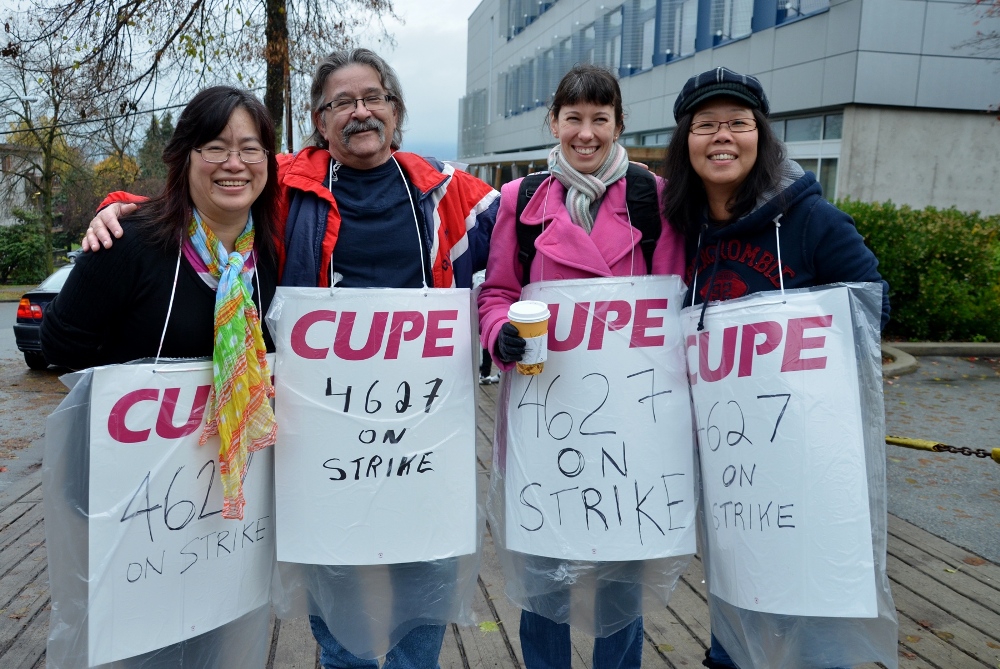 CU
462
ON STRIKE
CUPE
4627
ON
STRIKE
UPE
4627
ON
STRIKE
CUPE
4627
ON
STRIKE